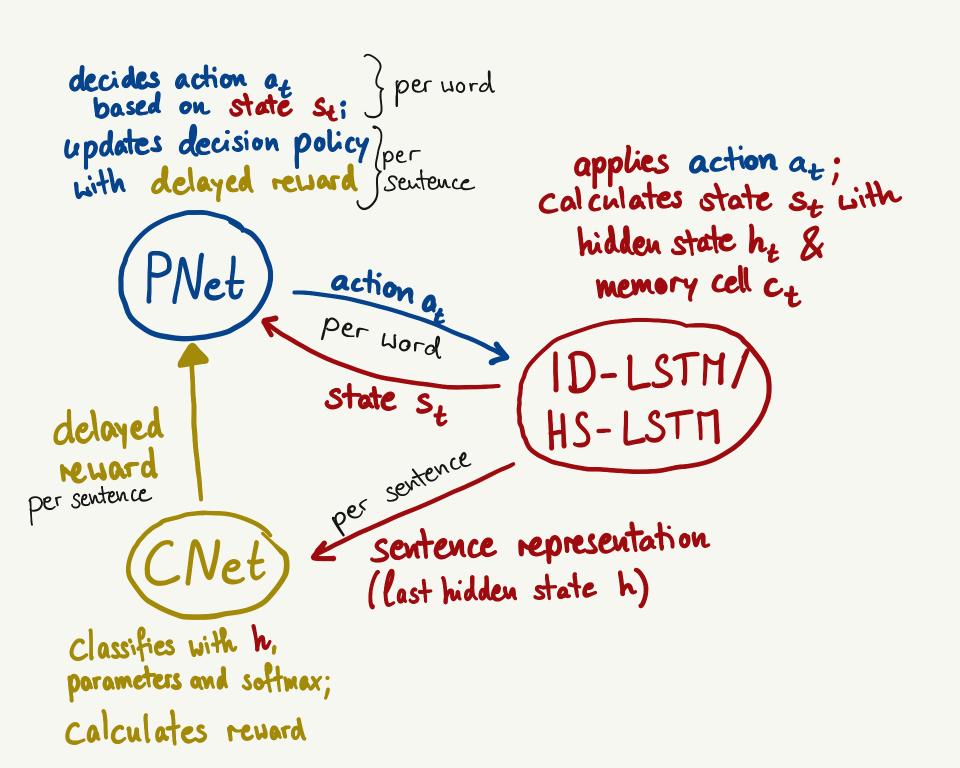 decides action a_t
based on state s_t;
per word
updates decision policy
with delayed reward
per
sentence
applies action a_t;
calculates state s_t with
hidden state h_t &
memory cell c_t
PNet
action a_t
per word
state s_t
ID-LSTM/
HS-LSTM
delayed
reward
per sentence
per sentence
sentence representation
(last hidden state h)
CNet
Classifies with h,
parameters and softmax;
Calculates reward